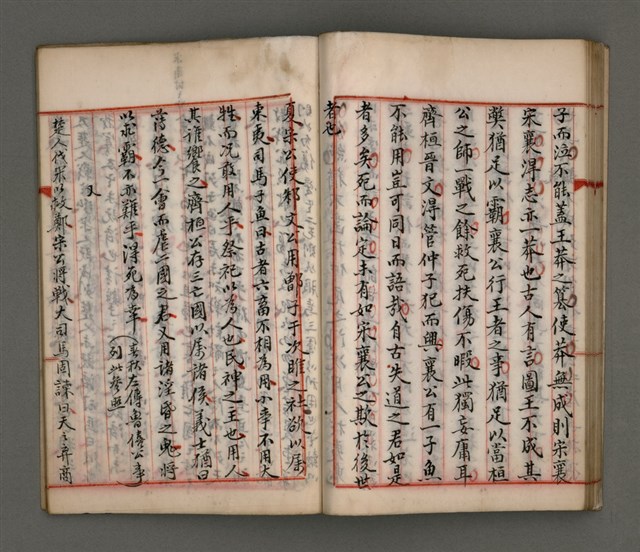 子而泣不能蓋王莽之簒使莽無成則宋襄
宋襄淂志亦一莽也古人有言圖王不成其
獘猶足以霸襄公行王者之事猶足以當桓
公之師一戰之餘救死扶傷不暇此獨妄庸耳
齊桓晉文淂管仲子犯而興襄公有一子魚
不能用豈可同日而語哉自古失道之君如是
者多矣死而論定未有如宋襄公之欺於後世
者也
夏宋公使邾文公用鄫子于次睢之社欲以属
東夷司馬子魚曰古者六畜不相為用小事不用大
牲而况敢用人乎祭祀以為人也民神之主也用人
其誰饗之齊桓公存三亡國以属諸侯義士猶曰
薄德今一會而虐二國之君又用諸淫昏之鬼將
以求霸不亦難乎淂死為幸(春秋左傳魯僖公事
列此參照)
又
楚人伐宋以救鄭宋公將戰大司馬固諫曰天之弃商